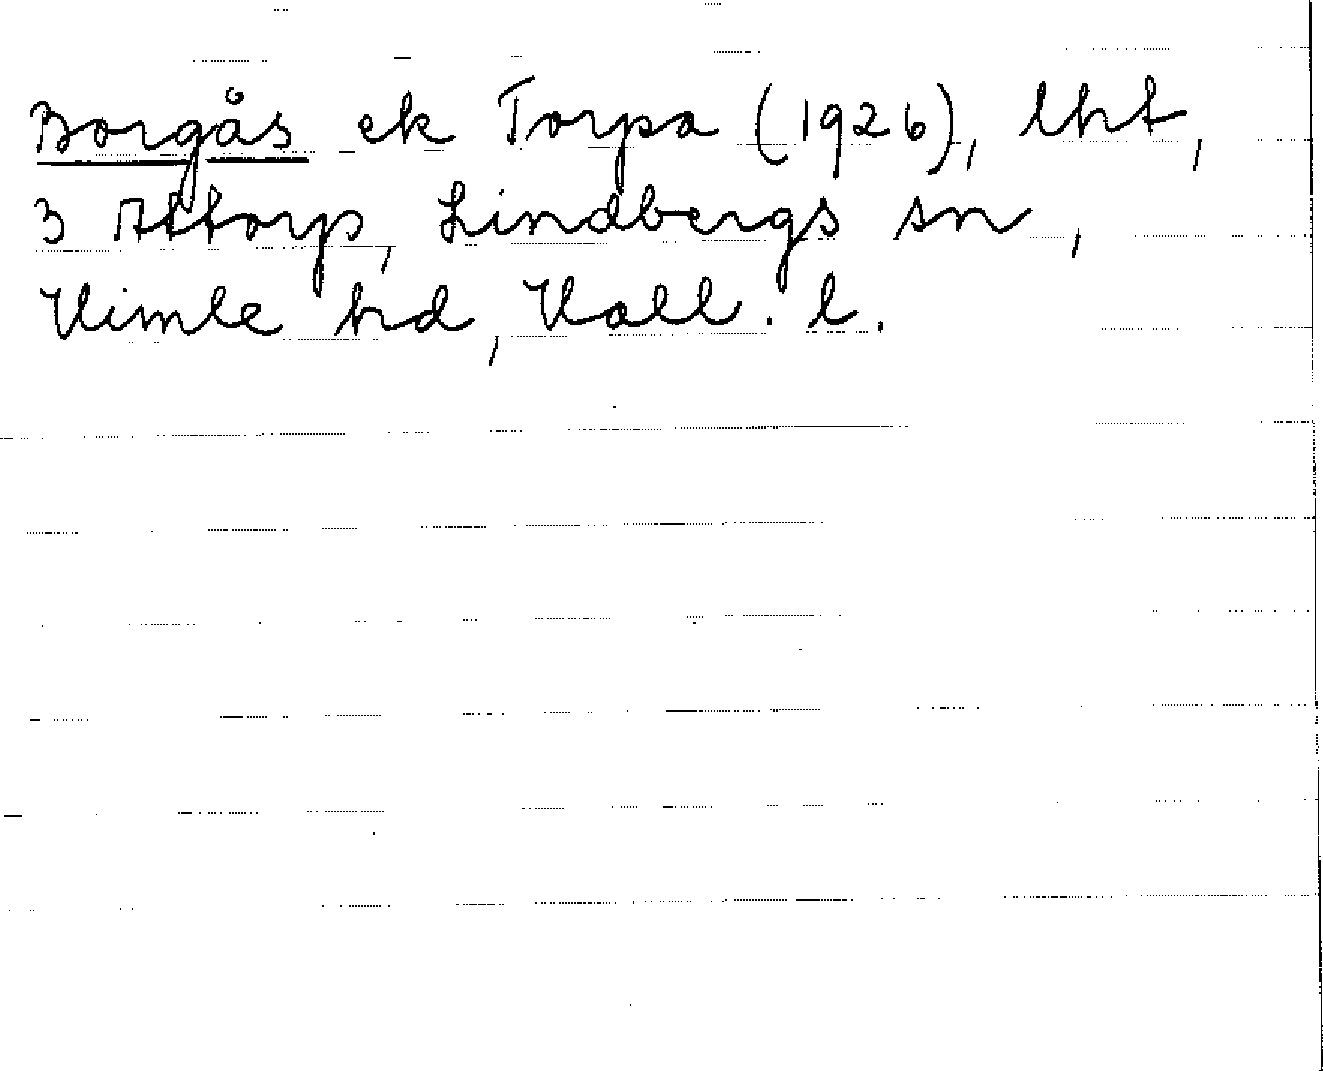 Borgås ek Torpa (1926), lht,
3 Attorp, Lindbergs sn,
Himle hd, Hall. l.